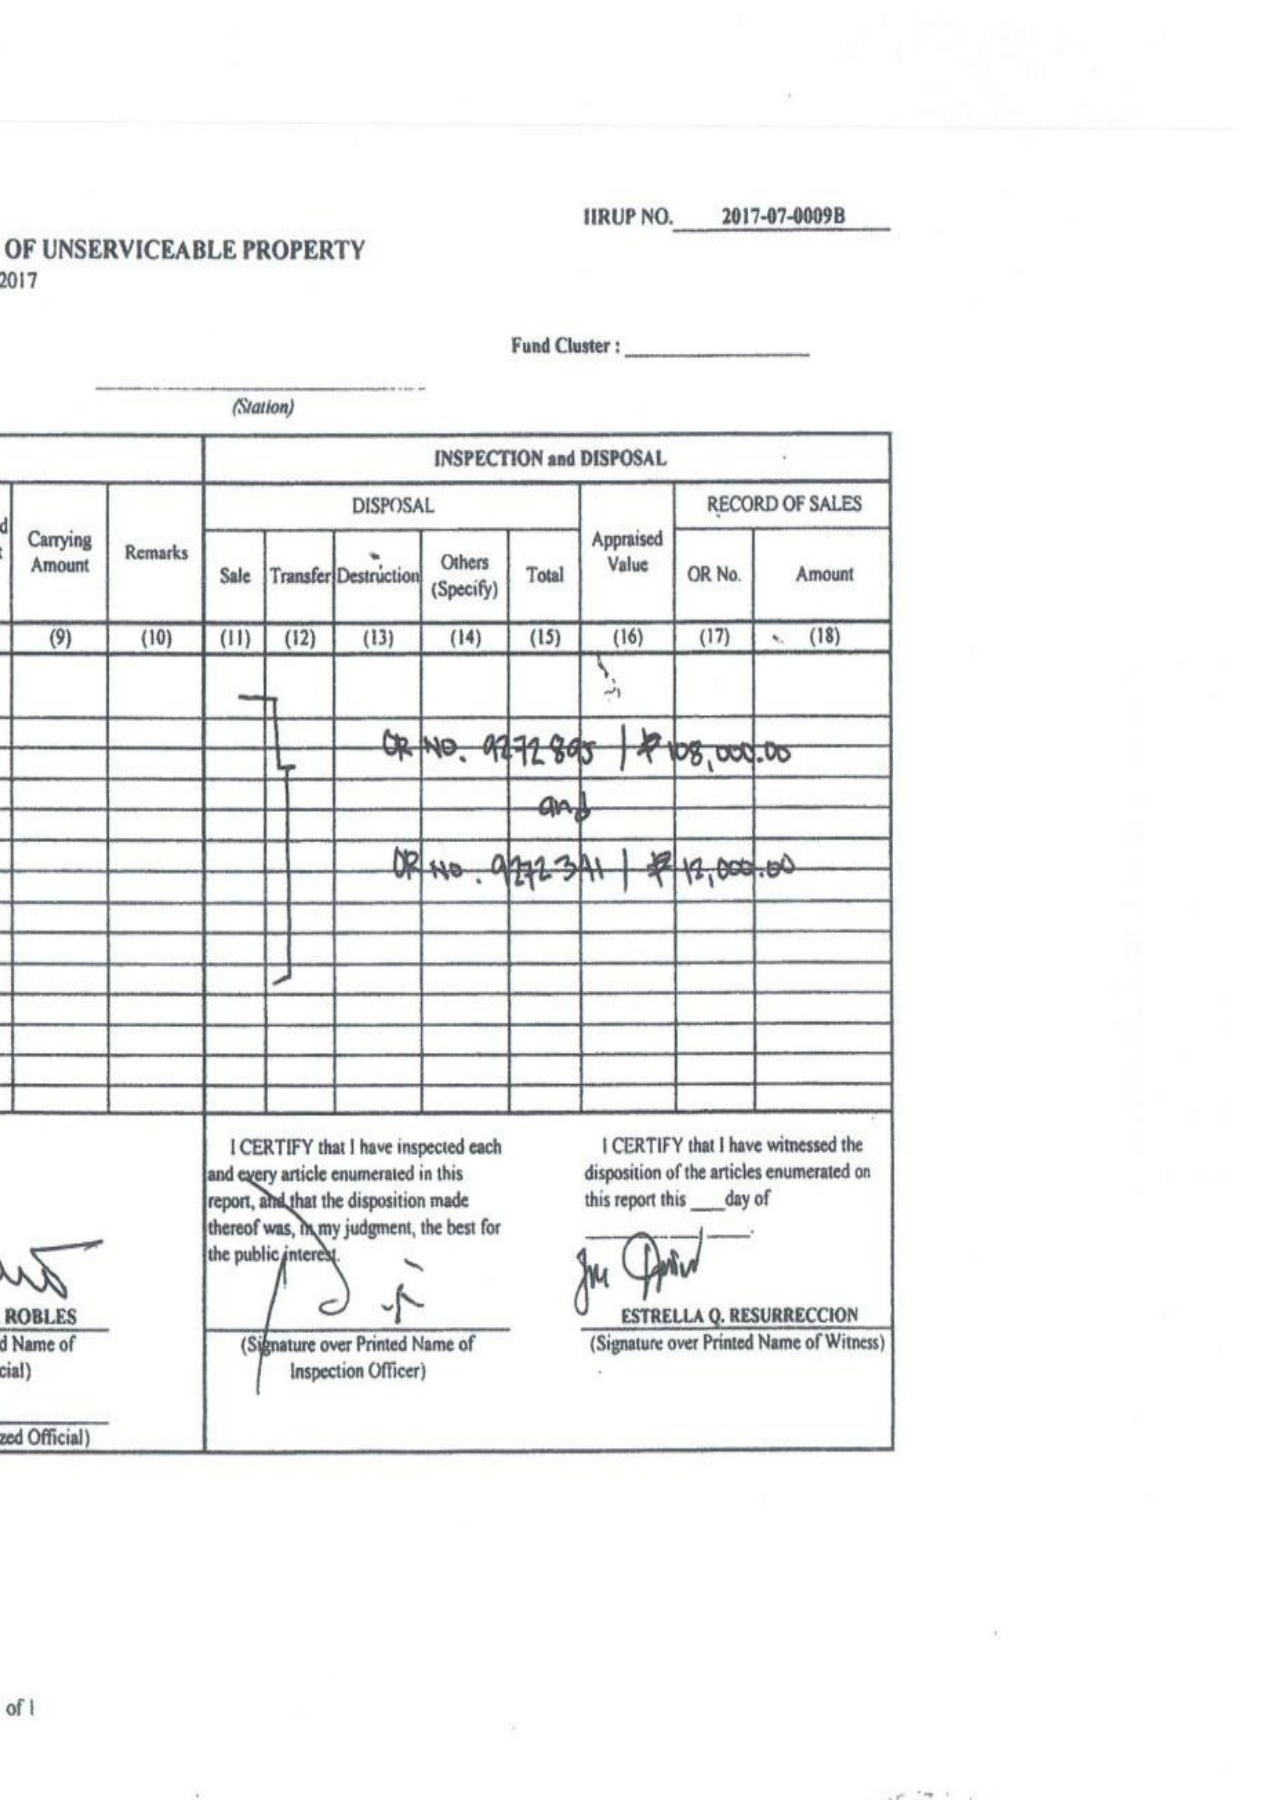 IIRUP NO. 2017-07-0009B
OF UNSERVICEABLE PROPERTY
2017
Fund Cluster :
(Station)
INSPECTION and DISPOSAL
DISPOSAL
RECORD OF SALES
Carrying
Amount
Remarks
Sale
Transfer
Destruction
Others
(Specify)
Total
Appraised
Value
OR No.
Amount
(9) (10) (11) (12) (13) (14) (15) (16) (17) (18)
OR NO. 9272895 | ₱ 108,000.00
and
OR NO. 9272341 | ₱ 12,000.00
I CERTIFY that I have inspected each
and every article enumerated in this
report, and that the disposition made
thereof was, in my judgment, the best for
the public interest.
(Signature over Printed Name of
Inspection Officer)
I CERTIFY that I have witnessed the
disposition of the articles enumerated on
this report this ___day of
ESTRELLA Q. RESURRECCION
(Signature over Printed Name of Witness)
ROBLES
d Name of
cial)
zed Official)
of 1